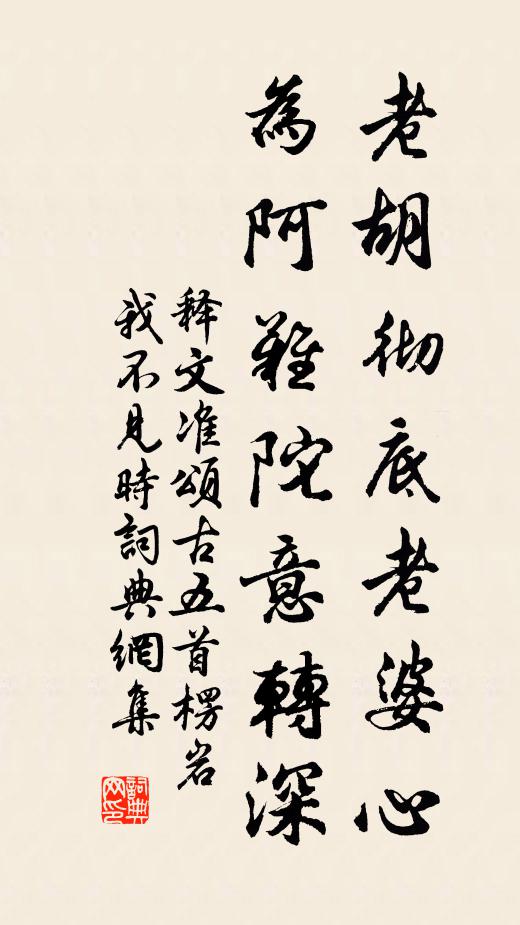 老胡彻底老婆心
為阿難陀意轉深
释文准頌古五首楞岩
我不見時詞典網集
詞典網印